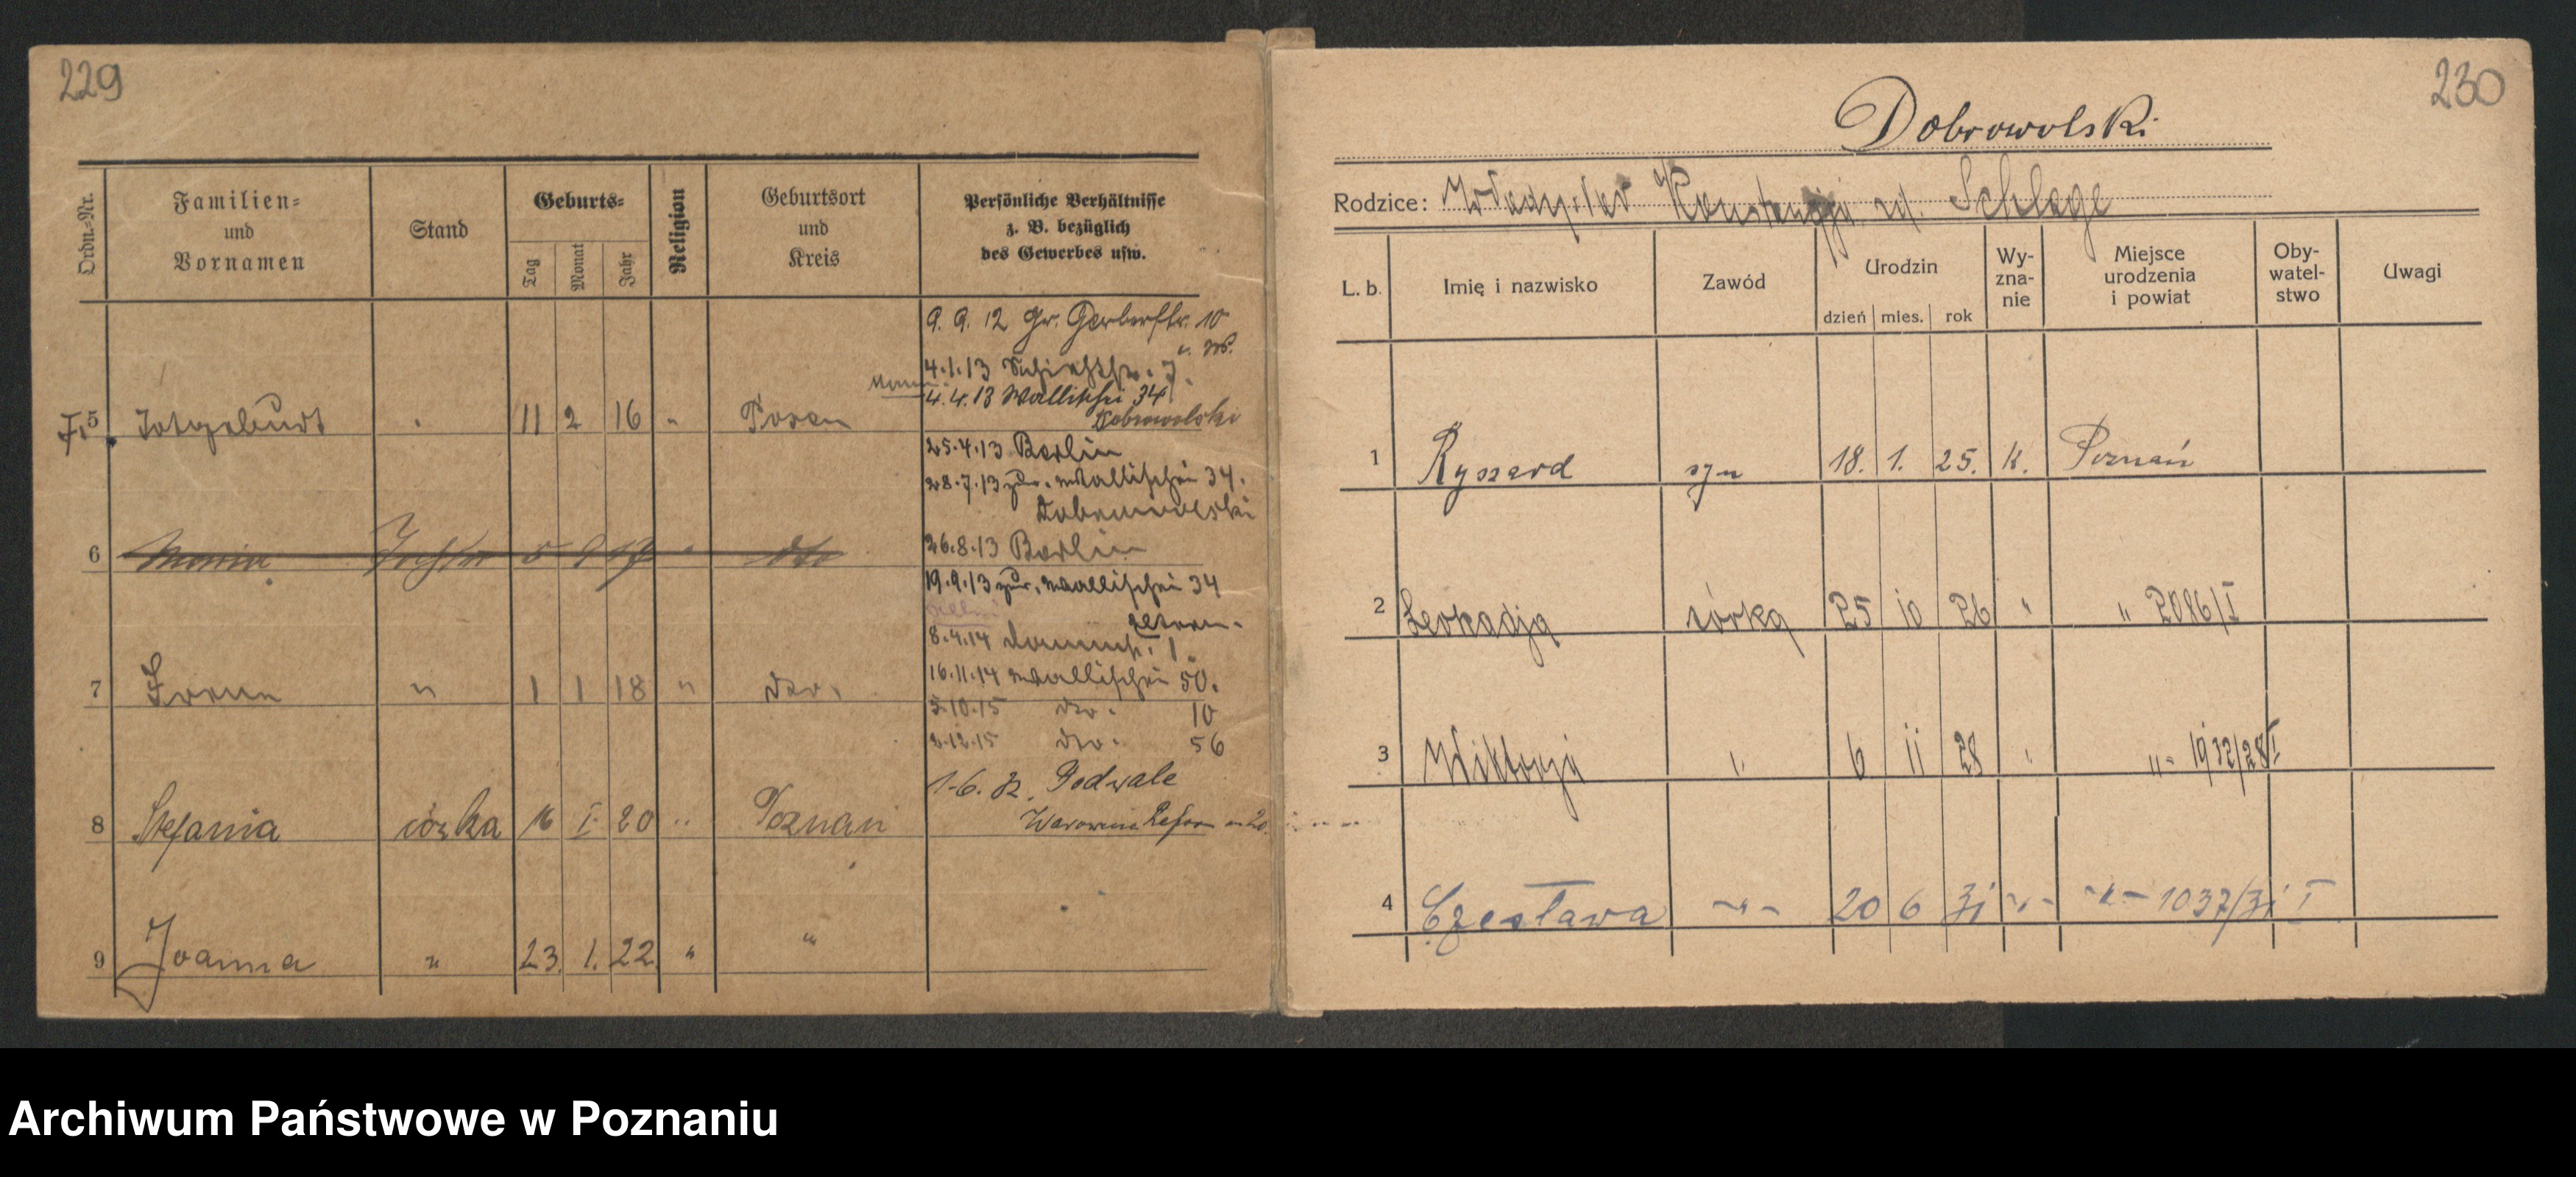 229
Ordn.-Nr.
Familien-
und
Vornamen
Stand
Geburts-
Tag
Monat
Jahr
Religion
Geburtsort
und
Kreis
Persönliche Verhältnisse
z. B. bezüglich
des Gewerbes usw.
9. 9. 12 Gr. Gerberstr. 10
4.1.13 7.
4.4.13 Wallischei 34
Dobrowolski
5 Totgeburt 11 2 16 " Posen
25.4.13 Berlin
28.7.13 zur. Wallischei 34.
Dobrowolski
6 Maria Tochter 5 9 17 " dto
26.8.13 Berlin
19.9.13 zur. Wallischei 34
Eltern.
8.4.14 Dominik. 1.
7 " 1 1 18 " dto.
16.11.14 Wallischei 50.
5.10.15 dto. 10
2.12.15 dto. 56
8 Stefania córka 16 I. 20 " Poznań
1.6. 32. Podwale
9 Joanna " 23. 1. 22. " "
230
Dobrowolski
Rodzice: Władysław Konstancja rd. Schlage
L. b.
Imię i nazwisko
Zawód
Urodzin
dzień mies. rok
Wy-
zna-
nie
Miejsce
urodzenia
i powiat
Oby-
watel-
stwo
Uwagi
1 Ryszard syn 18. 1. 25. K. Poznań
2 Leokadja córka 25 10 26 " " 2086/I
3 Wiktorja " 6 11 28 " " 1932/28 I
4 Czesława -"- 20 6 31 -"- -"- 1037/31 I
Archiwum Państwowe w Poznaniu